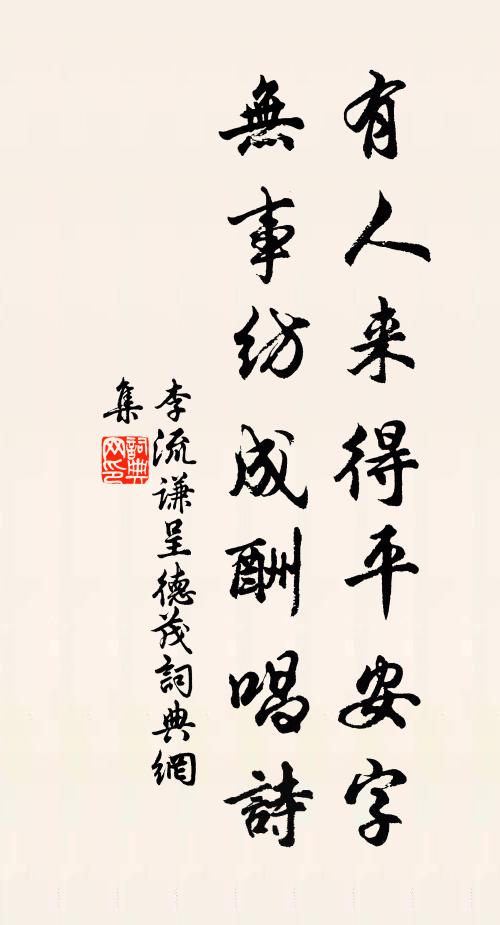 有人来得平安字
無事紡成酬唱詩
李流謙呈德茂詞典網
集
詞典網印